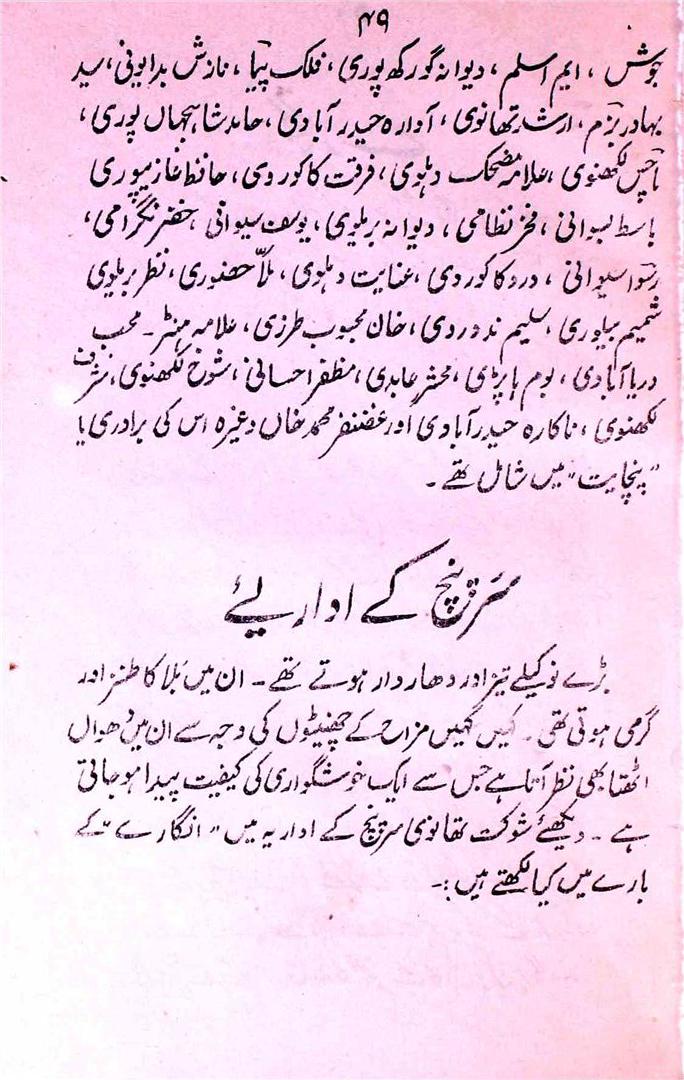 ۴۹
جوش ، ایم اسلم ، دیوانہ گورکھ پوری ، فلک پیما ، نازش بدایونی ، سید
بہادر بزم ، ارشد تھانوی ، آوارہ حیدر آبادی ، حامد شاہجہاں پوری ،
ماچس لکھنوی ، علامہ مضحک دہلوی ، فرقت کاکوروی ، حافظ غازیپوری
باسط بسوانی ، فخر نظامی ، دیوانہ بریلوی ، یوسف سیوانی ، خضر نگرامی ،
رسوا سیوانی ، درد کاکوروی ، عنایت دہلوی ، ملّا حضوری ، نظر بریلوی
شمیم بیلوری ، سلیم ندوردی ، خان محبوب طرزی ، علامہ ہنٹر ۔ محب
دریا آبادی ، بوم ہاپڑی ، محشر عابدی ، مظفر احسانی ، شوخ لکھنوی ، شرف
لکھنوی ، ناکارہ حیدر آبادی اور غضنفر محمد خاں وغیرہ اس کی برادری یا
“پنچایت” میں شامل تھے ۔
سرپنچ کے اداریئے
بڑے نوکیلے تیز اور دھاردار ہوتے تھے ۔ ان میں بلا کا طنز اور
گرمی ہوتی تھی ۔ کہیں کہیں مزاح کے چھینٹوں کی وجہ سے ان میں دھواں
اٹھتا بھی نظر آتا ہے جس سے ایک خوشگواری کی کیفیت پیدا ہو جاتی
ہے ۔ دیکھئے شوکت تھانوی سرپنچ کے اداریہ میں “انگارے” کے
بارے میں کیا لکھتے ہیں :-